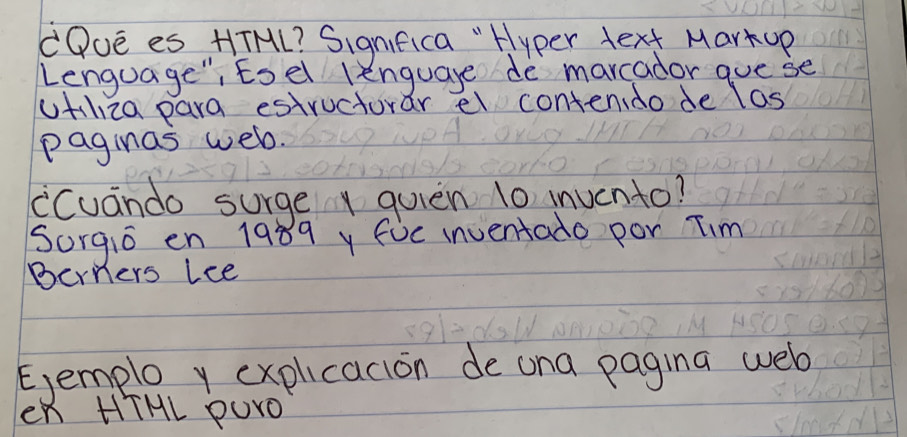 ¿Qué es HTML? Significa "Hyper text Markup
Lenguage", Es el lenguage de marcador que se
utiliza para estructurar el contenido de las
paginas web.
¿Cuándo surge y quién lo invento?
Surgió en 1989 y fue inventado por Tim
Berners Lee
Ejemplo y explicación de una pagina web
en HTML puro